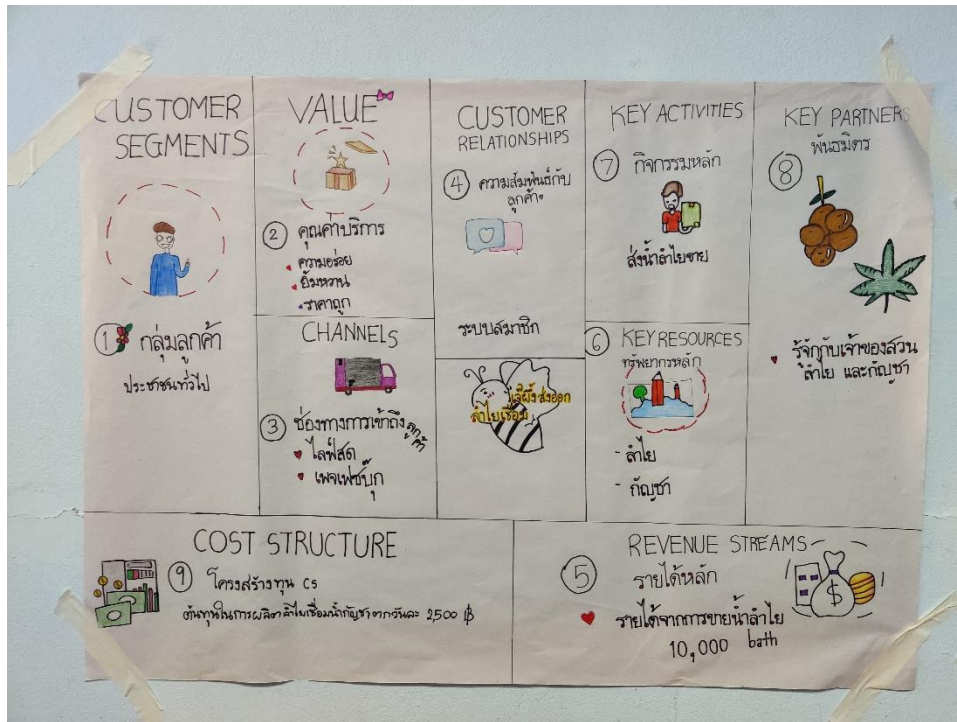 CUSTOMER
SEGMENTS
1 กลุ่มลูกค้า
ประชาชนทั่วไป
VALUE
2 คุณค่าบริการ
ความอร่อย
ยิ้มหวาน
ราคาถูก
CHANNELS
3 ช่องทางการเข้าถึงลูกค้า
ไลฟ์สด
เพจเฟซบุ๊ก
CUSTOMER
RELATIONSHIPS
4 ความสัมพันธ์กับ
ลูกค้า
ระบบสมาชิก
เจ๊ผึ้งส่งออก
ลำไยเชื่อม
KEY ACTIVITIES
7 กิจกรรมหลัก
ส่งน้ำลำไยขาย
6 KEY RESOURCES
ทรัพยากรหลัก
- ลำไย
- กัญชา
KEY PARTNERS
พันธมิตร
8
รู้จักกับเจ้าของสวน
ลำไย และกัญชา
COST STRUCTURE
9 โครงสร้างทุน CS
ต้นทุนในการผลิตลำไยเชื่อมน้ำกัญชาตกวันละ 2,500 ฿
REVENUE STREAMS
5 รายได้หลัก
$
รายได้จากการขายน้ำลำไย
10,000 bath